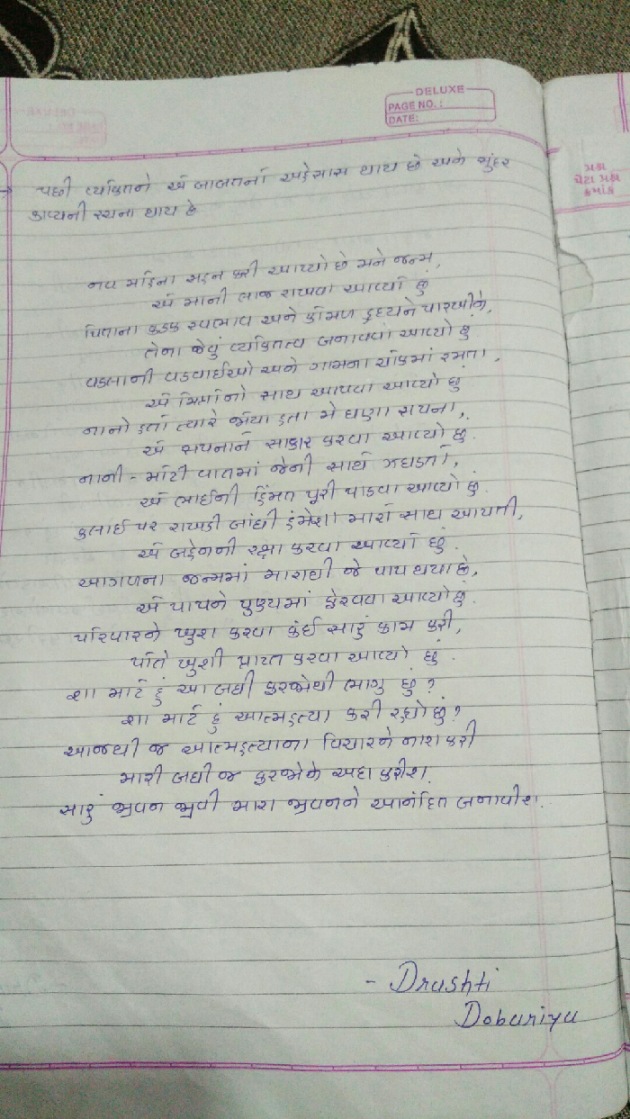 DELUXE
PAGE NO. :
DATE:
→ પછી વ્યકિતને એ બાબતનો અહેસાસ થાય છે અને સુંદર
કાવ્યની રચના થાય છે
નવ મહિના સહન કરી આપ્યો છે મને જન્મ,
એ માની લાજ રાખવા આવ્યો છું
પિતાના કડક સ્વભાવ અને કોમળ હ્રદયને પારખીને,
તેના જેવું વ્યકિતત્વ બનાવવા આવ્યો છું
વડલાની વડવાઈઓ અને ગામના ચોકમાં રમતા,
એ મિત્રોનો સાથ આપવા આવ્યો છું
નાનો હતો ત્યારે જોયા હતા મે ઘણા સપના,
એ સપનાને સાકાર કરવા આવ્યો છું.
નાની - મોટી વાતમાં જેની સાથે ઝઘડતો,
એ ભાઈની હિંમત પૂરી પાડવા આવ્યો છું.
કલાઈ પર રાખડી બાંધી હંમેશા મારો સાથ આપતી,
એ બહેનની રક્ષા કરવા આવ્યો છું.
આગળના જન્મમાં મારાથી જે પાપ થયા છે,
એ પાપને પુણ્યમાં ફેરવવા આવ્યો છું.
પરિવારને ખુશ કરવા કંઈ સારું કામ કરી,
પોતે ખુશી પ્રાપ્ત કરવા આવ્યો છું.
શા માટે હું આ બધી ફરજોથી ભાગુ છું?
શા માટે હું આત્મહત્યા કરી રહ્યો છું?
આજથી જ આત્મહત્યાના વિચારને નાશ કરી
મારી બધી જ ફરજોને અદા કરીશ.
સારું જીવન જીવી મારા જીવનને આનંદિત બનાવીશ.
- Drashti
Dobariya